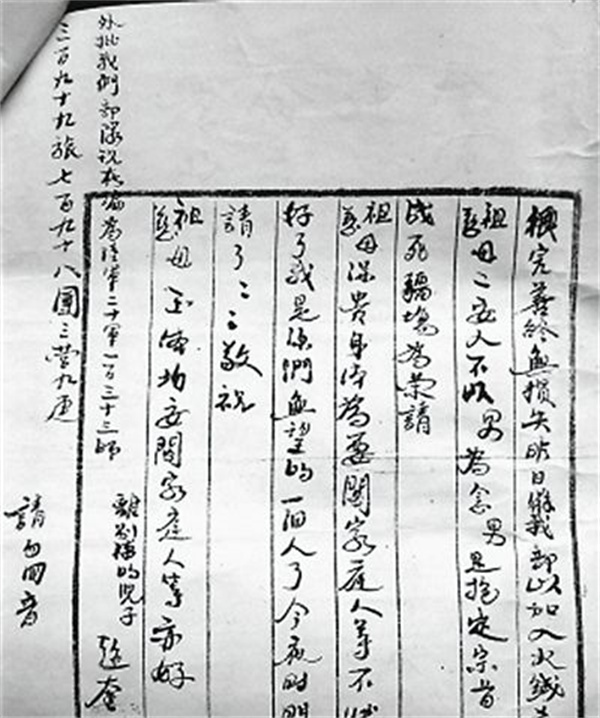 機完善終無損失昨日織我部以加入火線
祖慈母二安人不以男為念男是抱定宗旨
战死疆場為榮請
祖慈母保貴身体為要闔家庭人等不
好了我是你們無望的一個人了今夜时
請了二三敬祝
祖慈母玉体均安閤家庭人等亦好
離別情的兒子
請勿回音
外批我們部隊说在編為陸軍二十軍一百三十三師
三百九十九旅七百九十八團三营九连